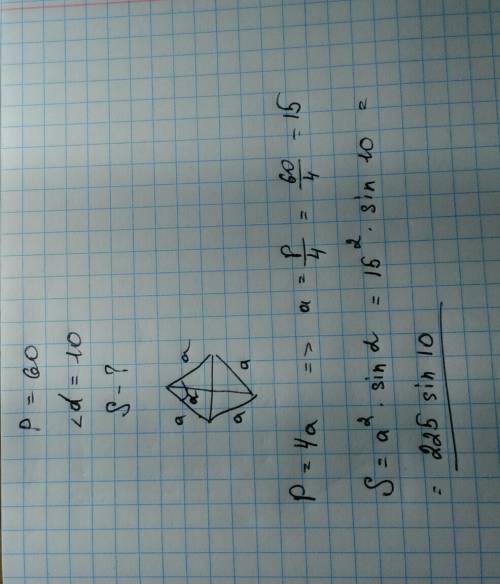 P = 60
<d = 10
S - ?
a a
d
a a
P = 4a => a = P/4 = 60/4 = 15
S = a² · sin d = 15² · sin 10 =
= 225 sin 10